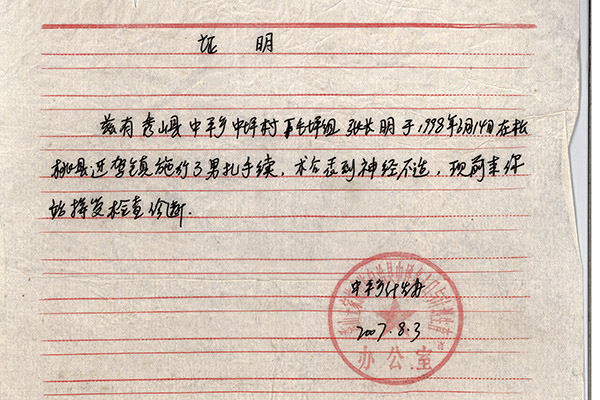 证 明
兹有秀山县中平乡中坪村下毛坪组张长明于1998年3月14日在松
桃县迓驾镇施行了男扎手续,术后表到神经不适,现前来你
站接受检查诊断.
中平乡计生办
2007.8.3
办公室